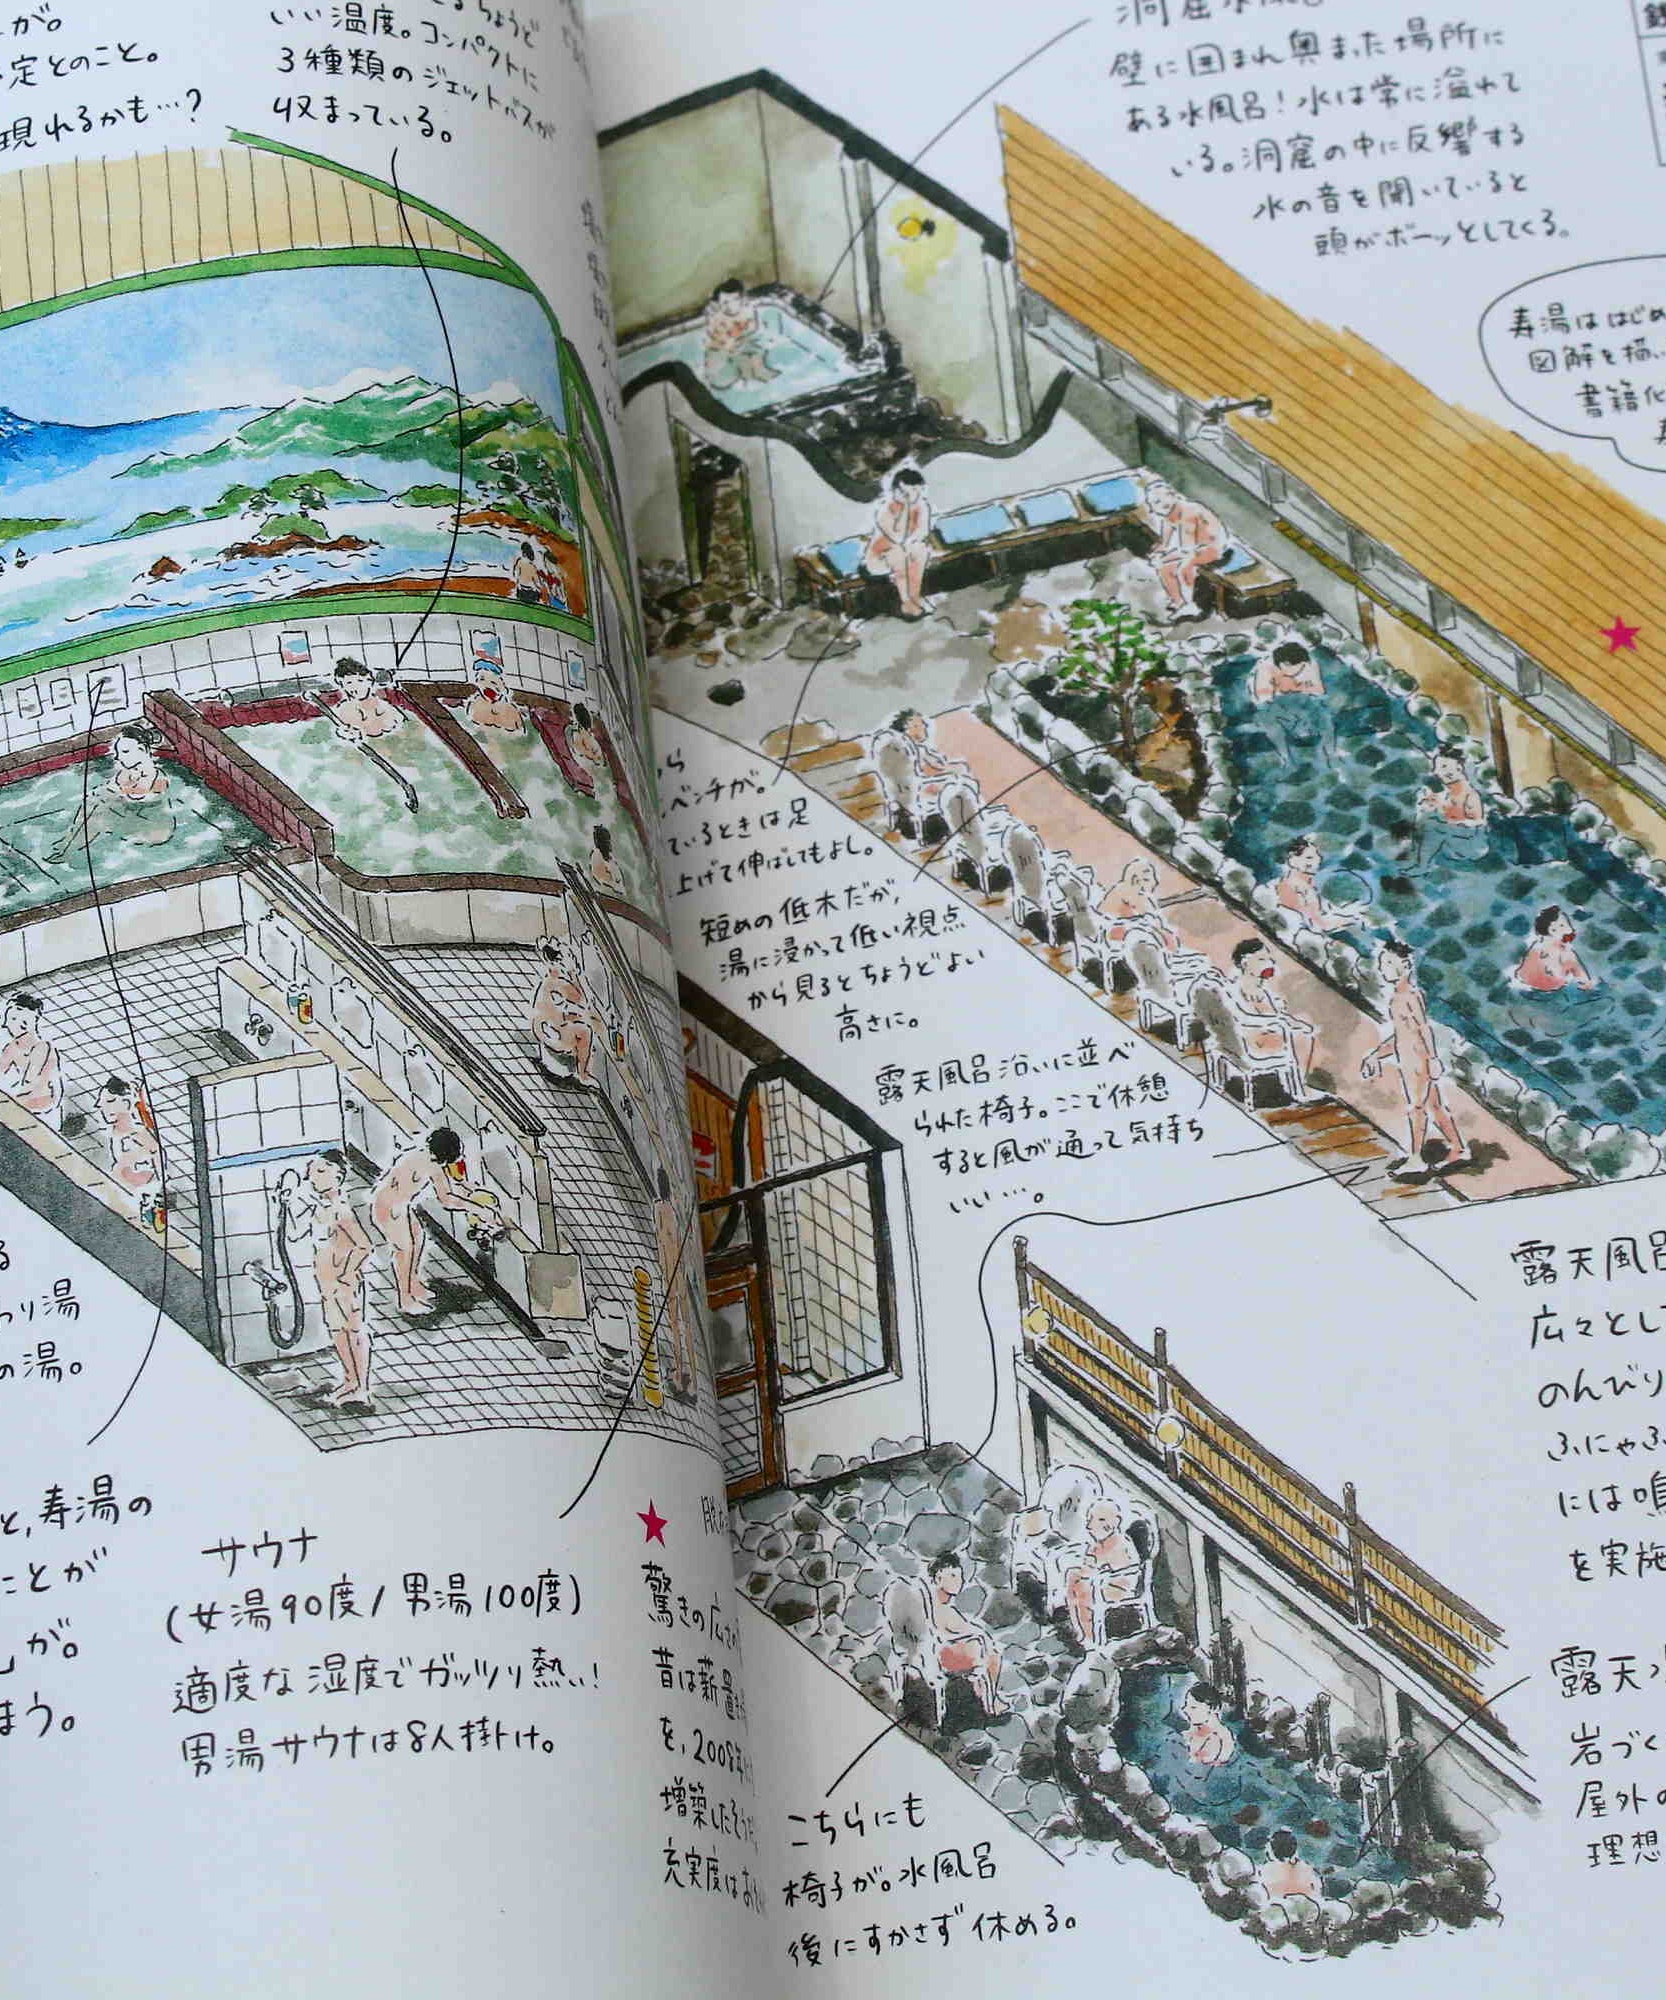 が。
定とのこと。
現れるかも…?
ちょうど
いい温度。コンパクトに
3種類のジェットバスが
収まっている。
洞窟水風呂
壁に囲まれ奥まった場所に
ある水風呂!水は常に溢れて
いる。洞窟の中に反響する
水の音を聞いていると
頭がボーッとしてくる。
寿湯ははじめ
図解を描い
書籍化
ベンチが。
ているときは足
上げて伸ばしてもよし。
短めの低木だが、
湯に浸かって低い視点
から見るとちょうどよい
高さに。
露天風呂沿いに並べ
られた椅子。ここで休憩
すると風が通って気持ち
いい…。
る
わり湯
の湯。
と、寿湯の
ことが
が。
まう。
サウナ
(女湯90度/男湯100度)
適度な湿度でガッツリ熱い!
男湯サウナは8人掛け。
★
驚きの広さ
昔は薪置
を、2008年
増築したそう
充実度は
こちらにも
椅子が。水風呂
後にすかさず休める。
★
露天風呂
広々として
のんびり
ふにゃふ
には鳴
を実施
露天水
岩づく
屋外の
理想